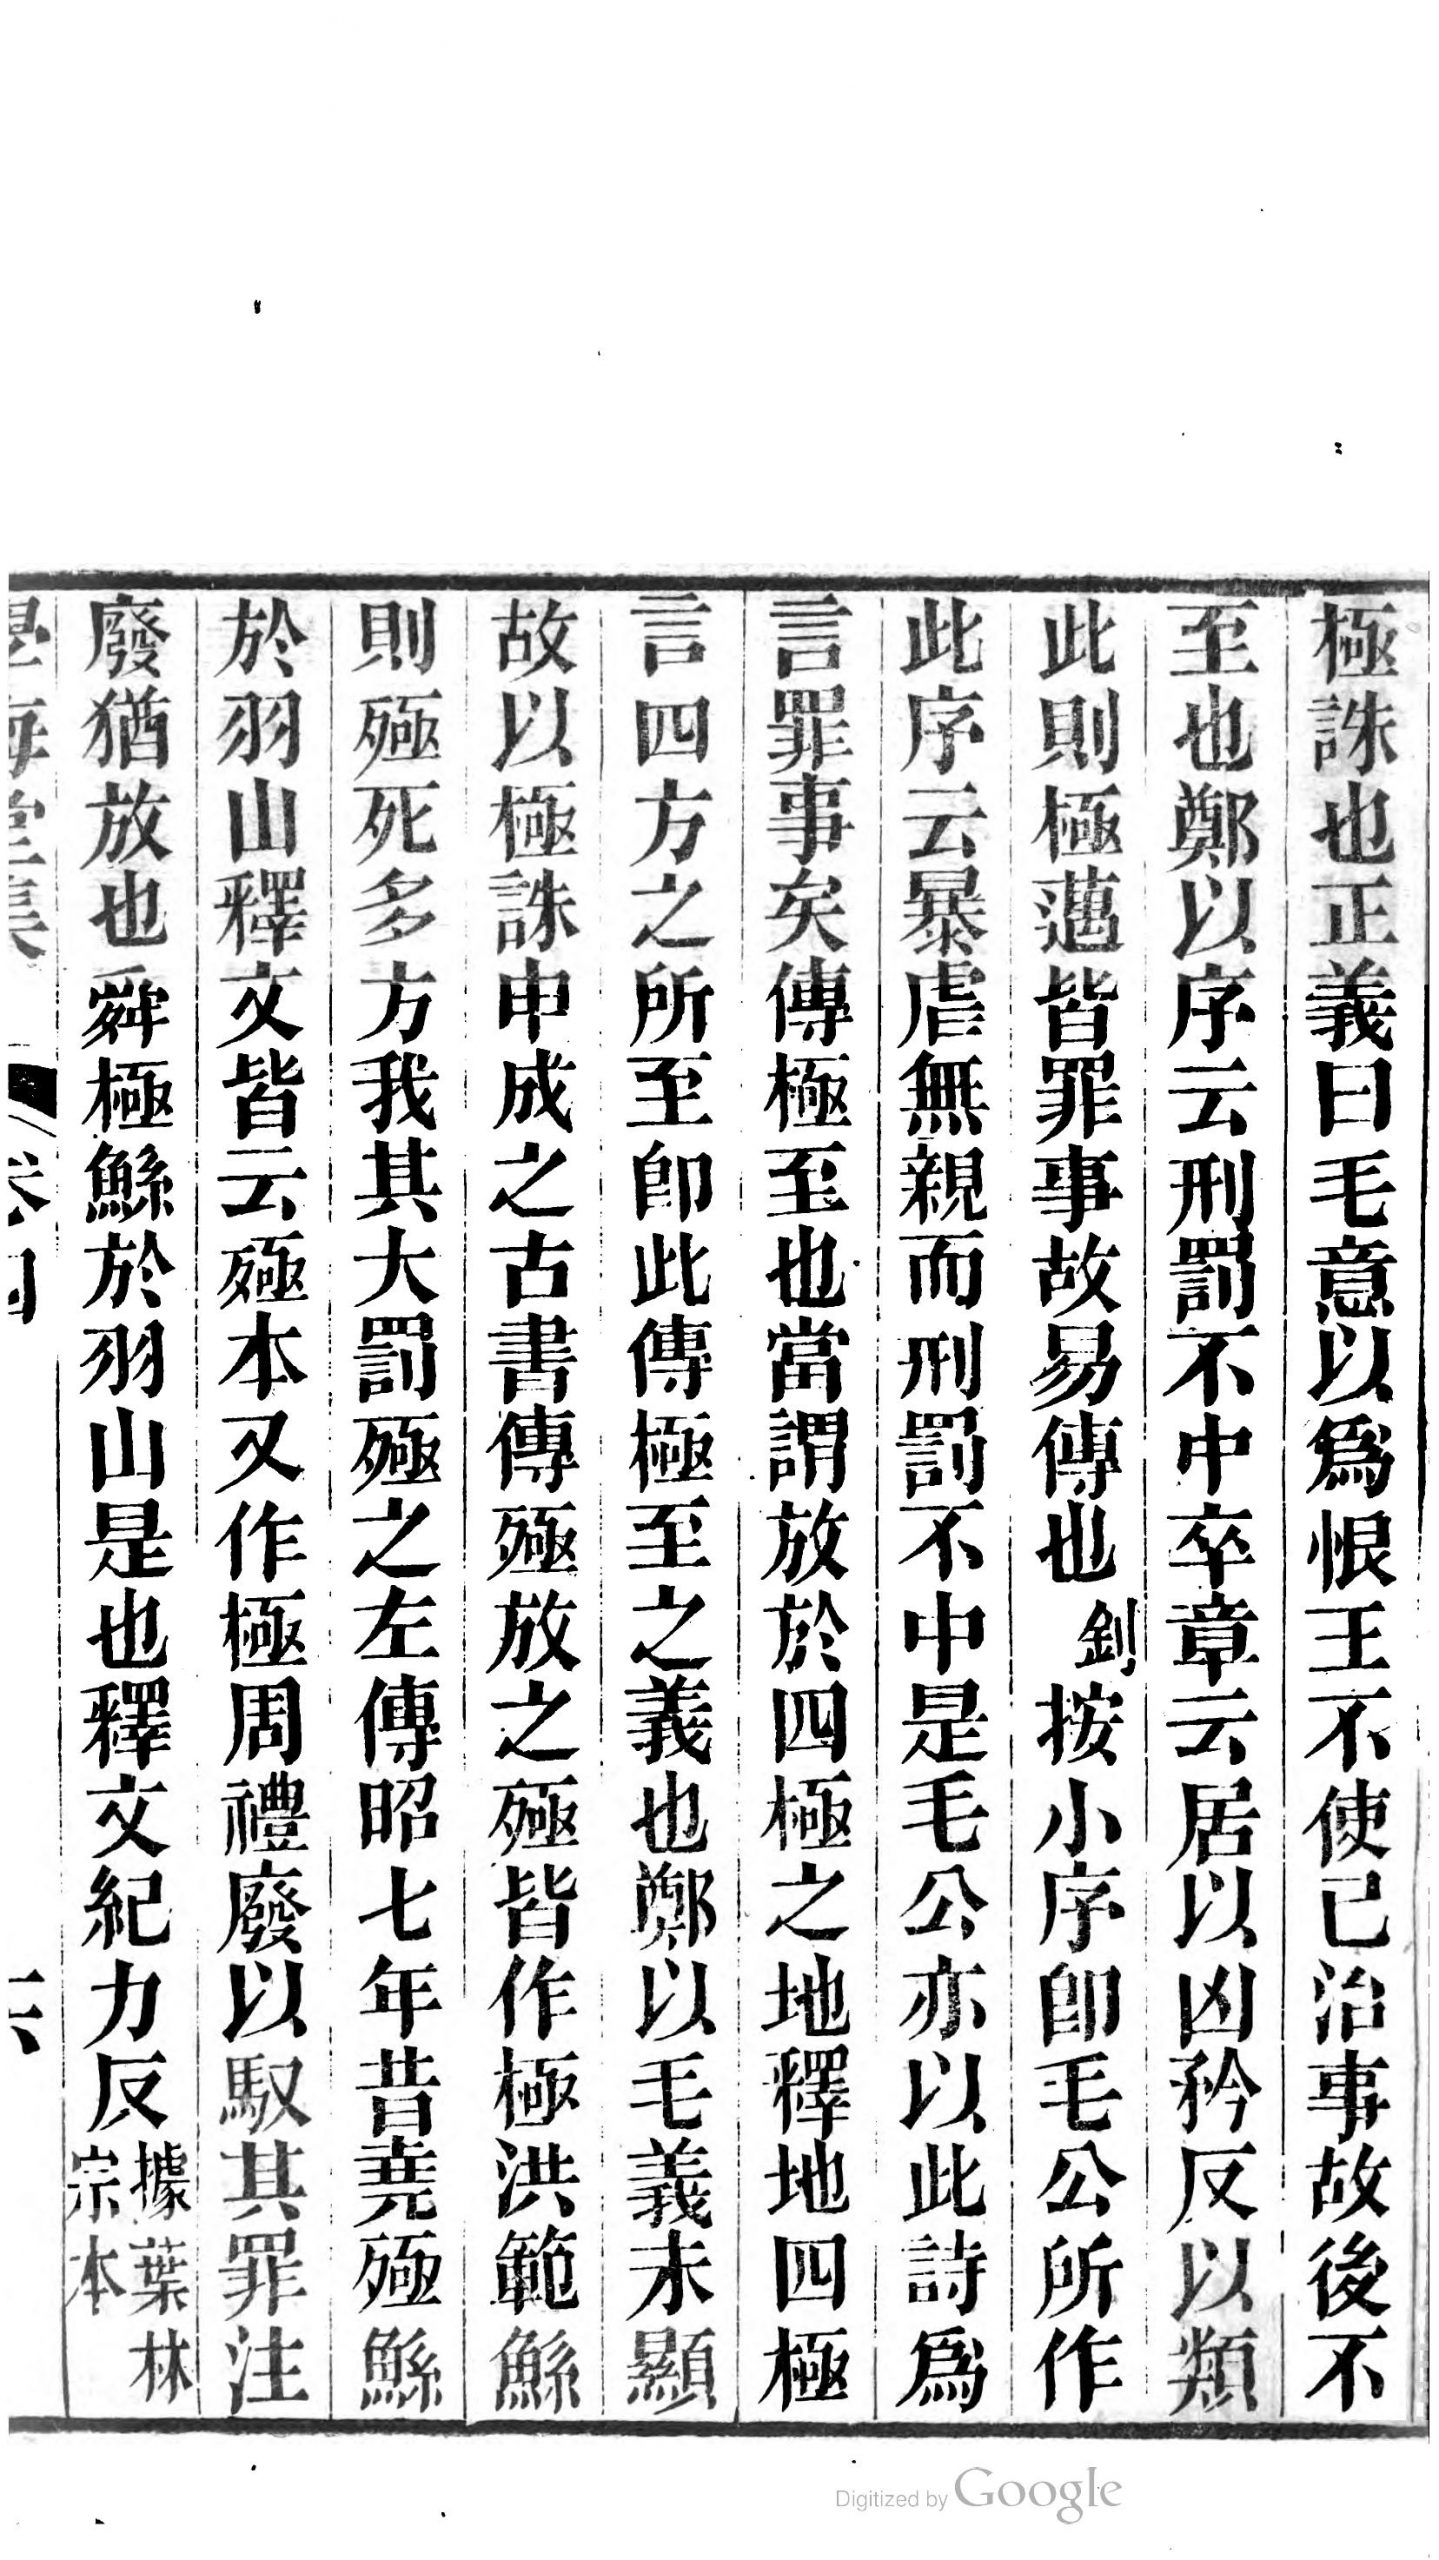 極誅也正義曰毛意以爲恨王不使已治事故後不
至也鄭以序云刑罰不中卒章云居以凶矜反以類
此則極邁皆罪事故易傳也釗按小序卽毛公所作
此序云暴虐無親而刑罰不中是毛公亦以此詩爲
言罪事矣傳極至也當謂放於四極之地釋地四極
言四方之所至卽此傳極至之義也鄭以毛義未顯
故以極誅申成之古書傳殛放之殛皆作極洪範鯀
則殛死多方我其大罰殛之左傳昭七年昔堯殛鯀
於羽山釋文皆云殛本又作極周禮廢以馭其罪注
廢猶放也舜極鯀於羽山是也釋文紀力反據葉林宗本
學海堂集 卷四 十六
Digitized by Google